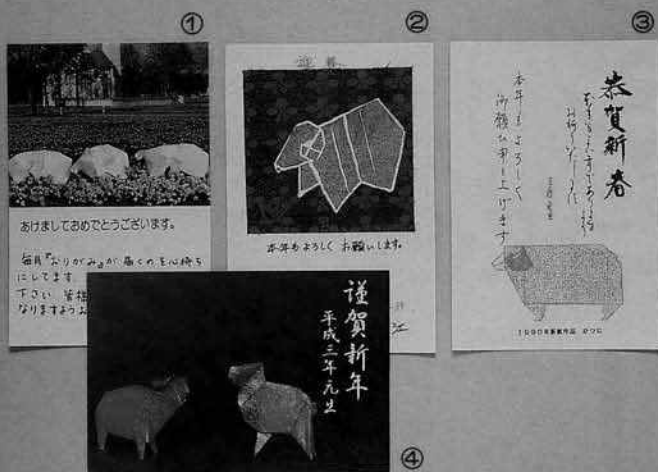 ①
②
③
あけましておめでとうございます。
毎月『おりがみ』が届くのを心待ち
にしてます
下さい 皆様
なりますよう
迎春
本年もよろしくお願いします。
江
恭賀新春
本年もよろしく
御願い申し上げます
謹賀新年
平成三年元旦
④